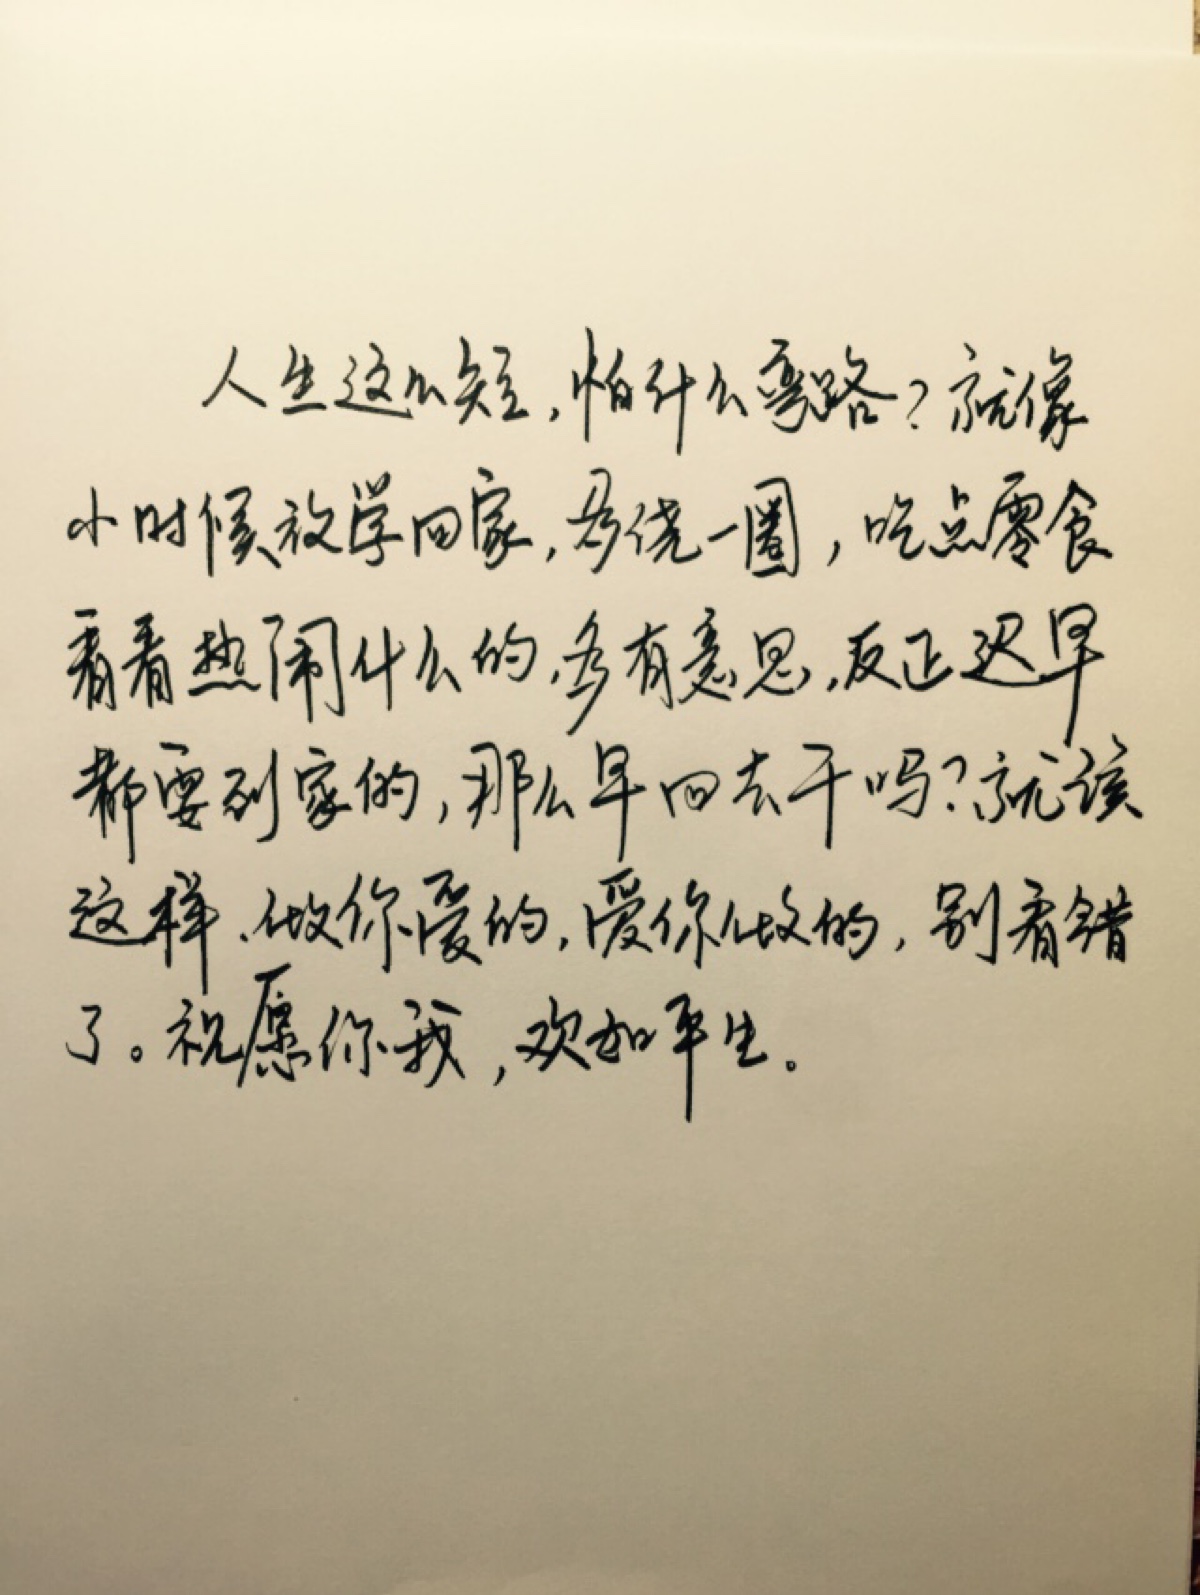 人生这么短，怕什么弯路？就像
小时候放学回家，多绕一圈，吃点零食
看看热闹什么的，多有意思，反正迟早
都要到家的，那么早回去干吗？就该
这样、做你爱的，爱你做的，别看错
了。祝愿你我，欢如平生。